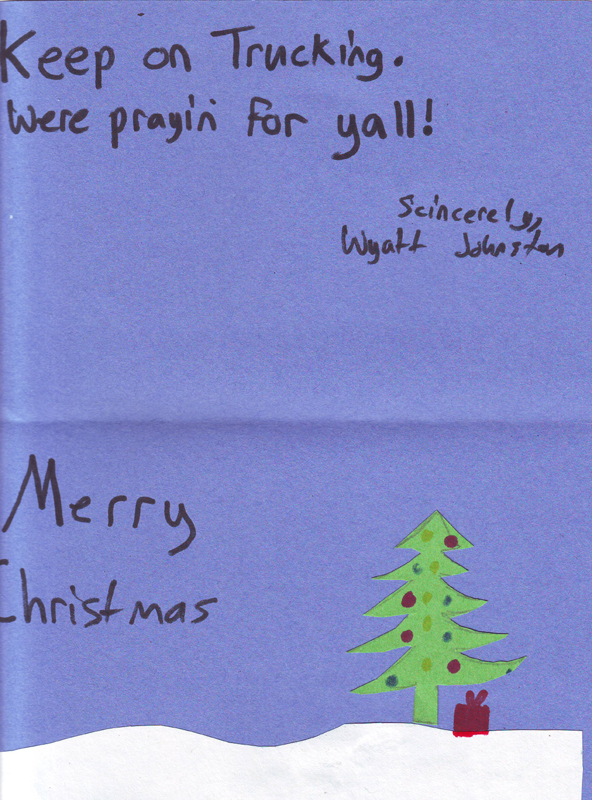 Keep on Trucking.
Were prayin for yall!
Scincerely,
Wyatt Johnston
Merry
Christmas